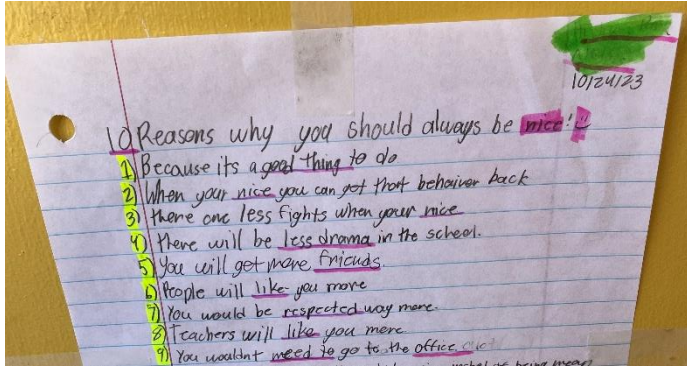 10/24/23
10 Reasons why you should always be nice!
1) Because its a good thing to do
2) When your nice you can get that behaiver back
3) there are less fights when your nice
4) there will be less drama in the school.
5) You will get more friends
6) People will like you more
7) You would be respected way more.
8) Teachers will like you more
9) You wouldnt need to go to the office
being mean